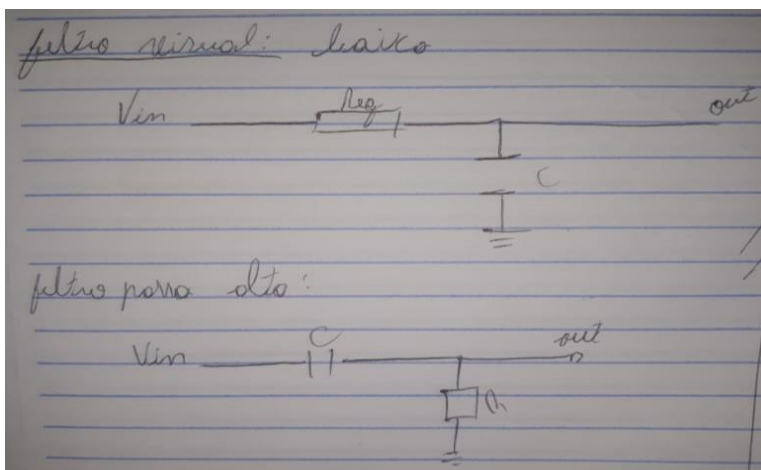 filtro visual: baixo
Vin Req out
C
filtro passa alto:
C
Vin out
R